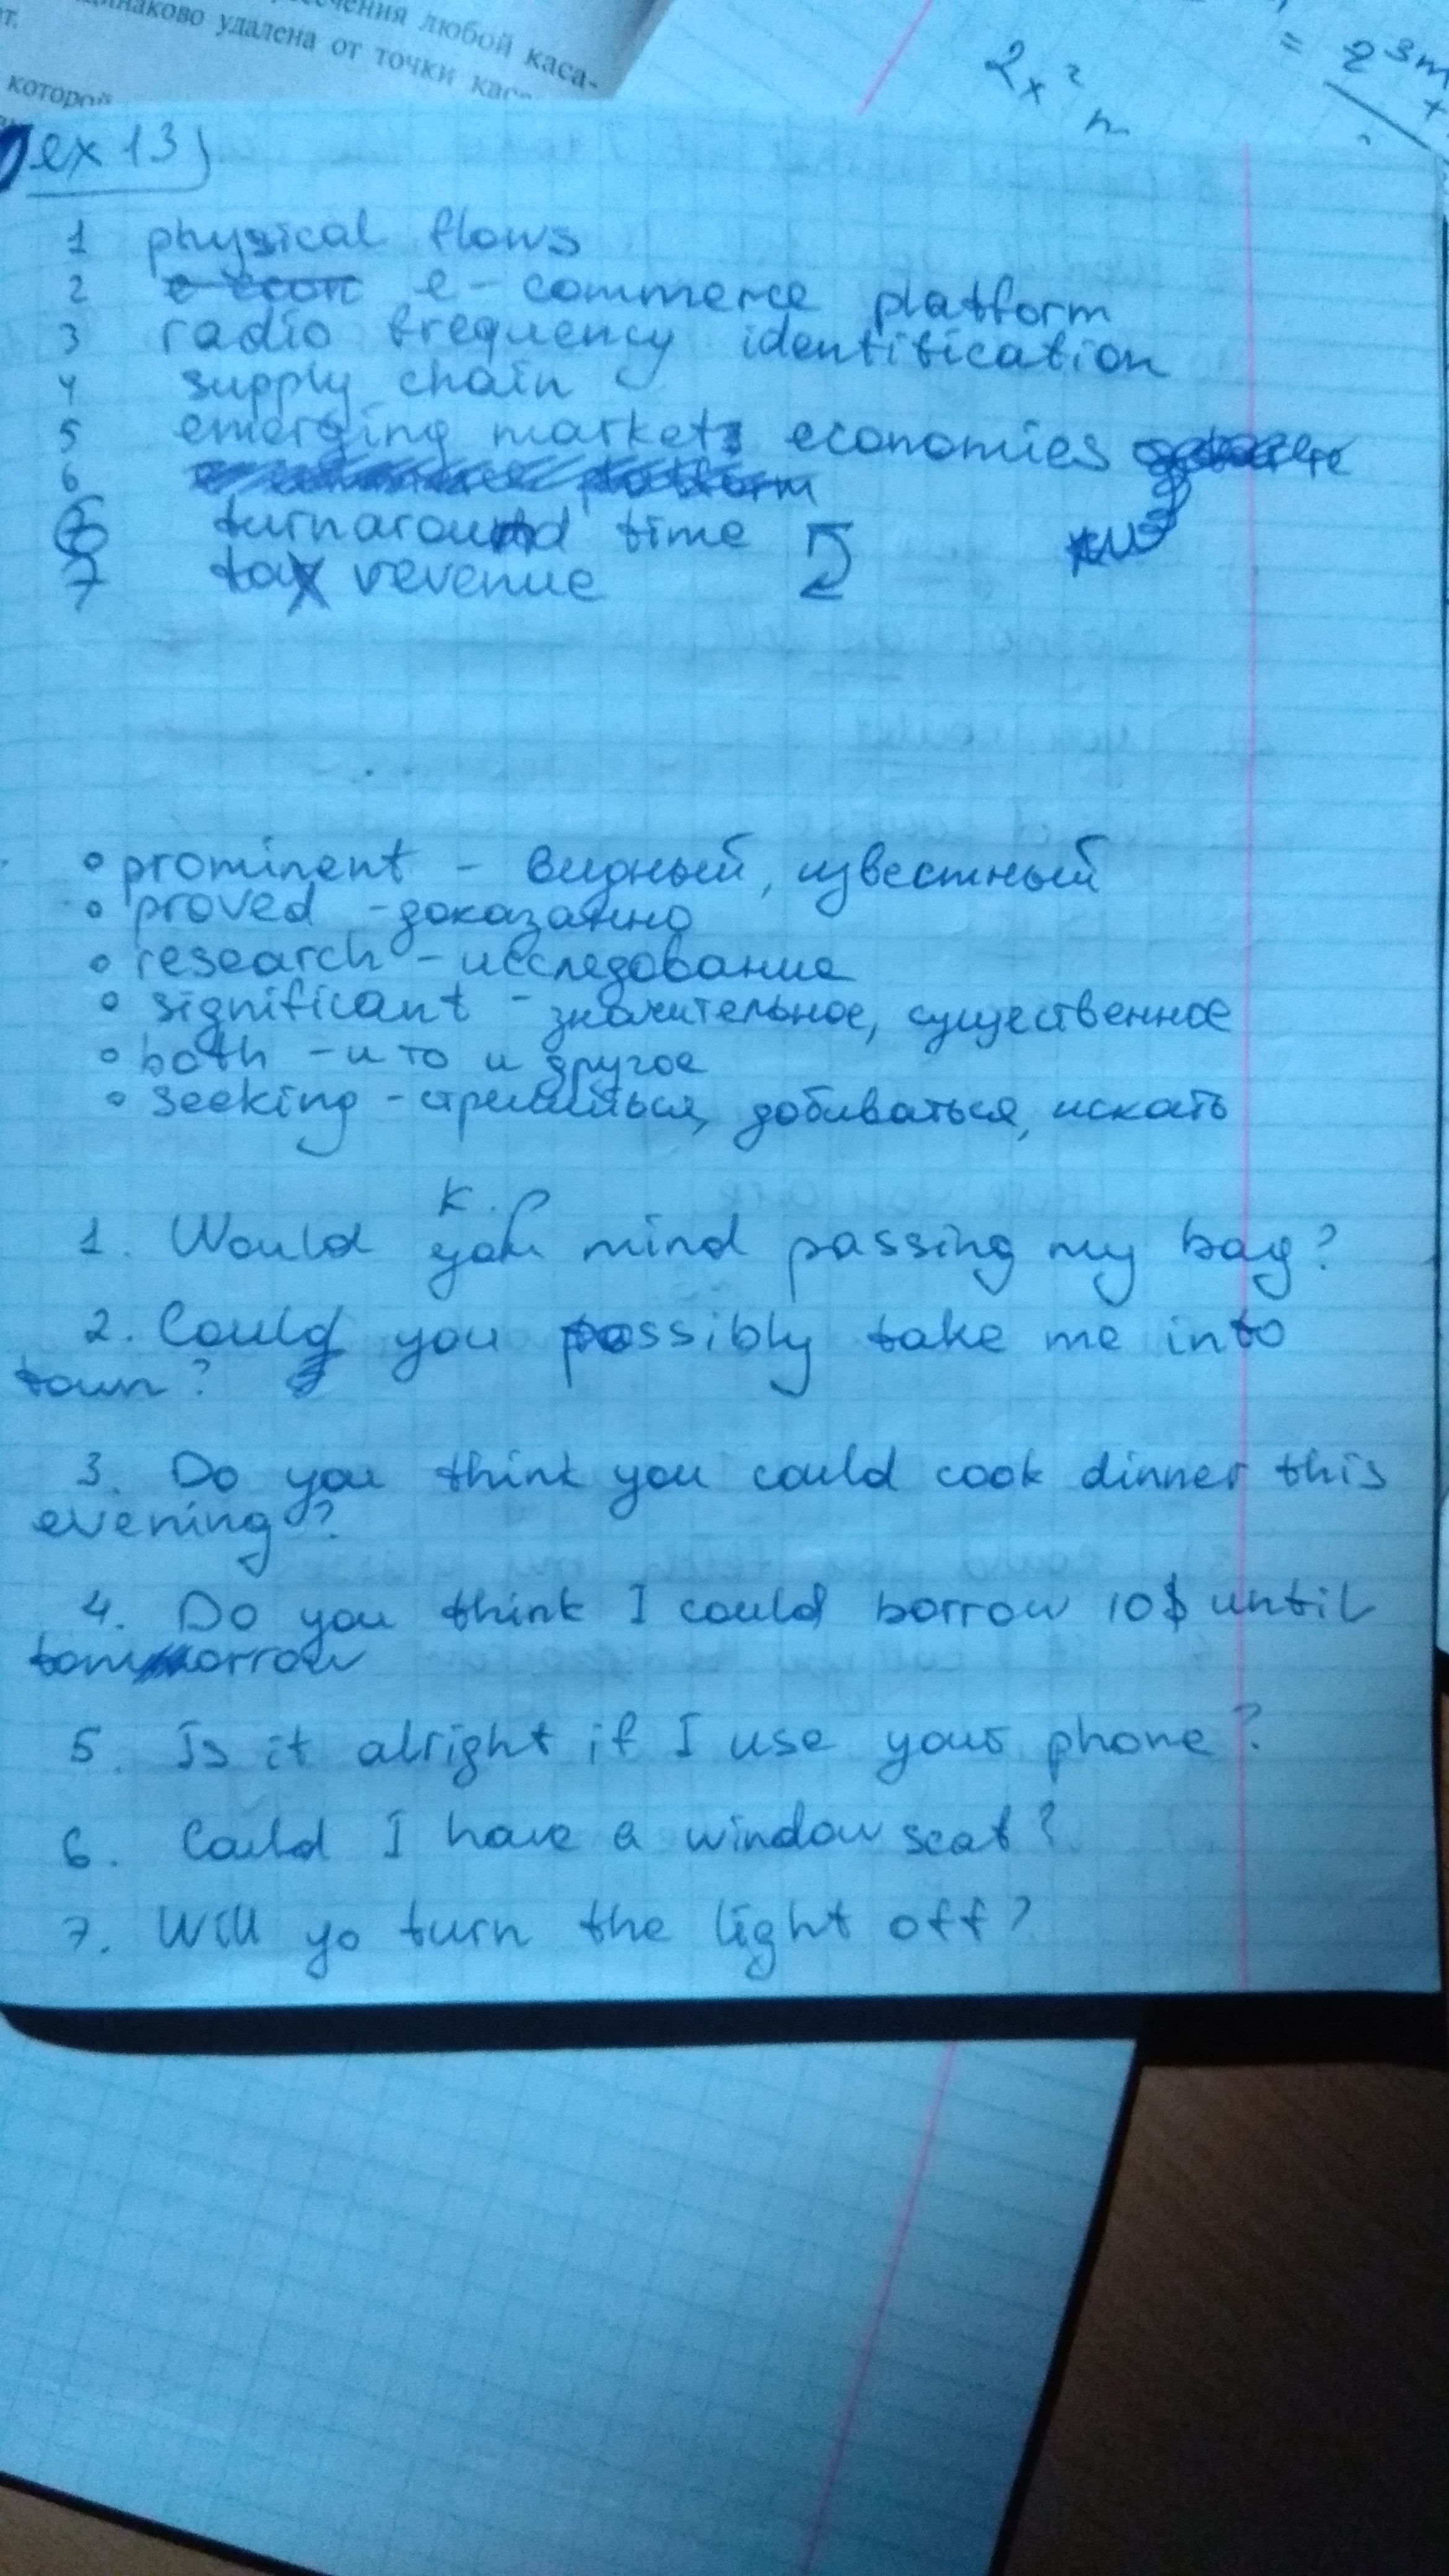 чения любой каса-
инаково удалена от точки кас
т.
которой
2x² n
= 2 3m
ex 13)
1 physical flows
2 e-commerce platform
3 radio frequency identification
4 supply chain
5 emerging markets economies
6 platform
6 turnaround time
7 tax revenue
• prominent - видный, известный
• proved - доказанно
• research - исследование
• significant - значительное, существенное
• both - и то и другое
• seeking - стремиться, добиваться, искать
К.Р
1. Would you mind passing my bag?
2. Could you possibly take me into
town?
3. Do you think you could cook dinner this
evening?
4. Do you think I could borrow 10$ until
tomorrow
5. Is it alright if I use your phone?
6. Could I have a window seat?
7. Will yo turn the light off?